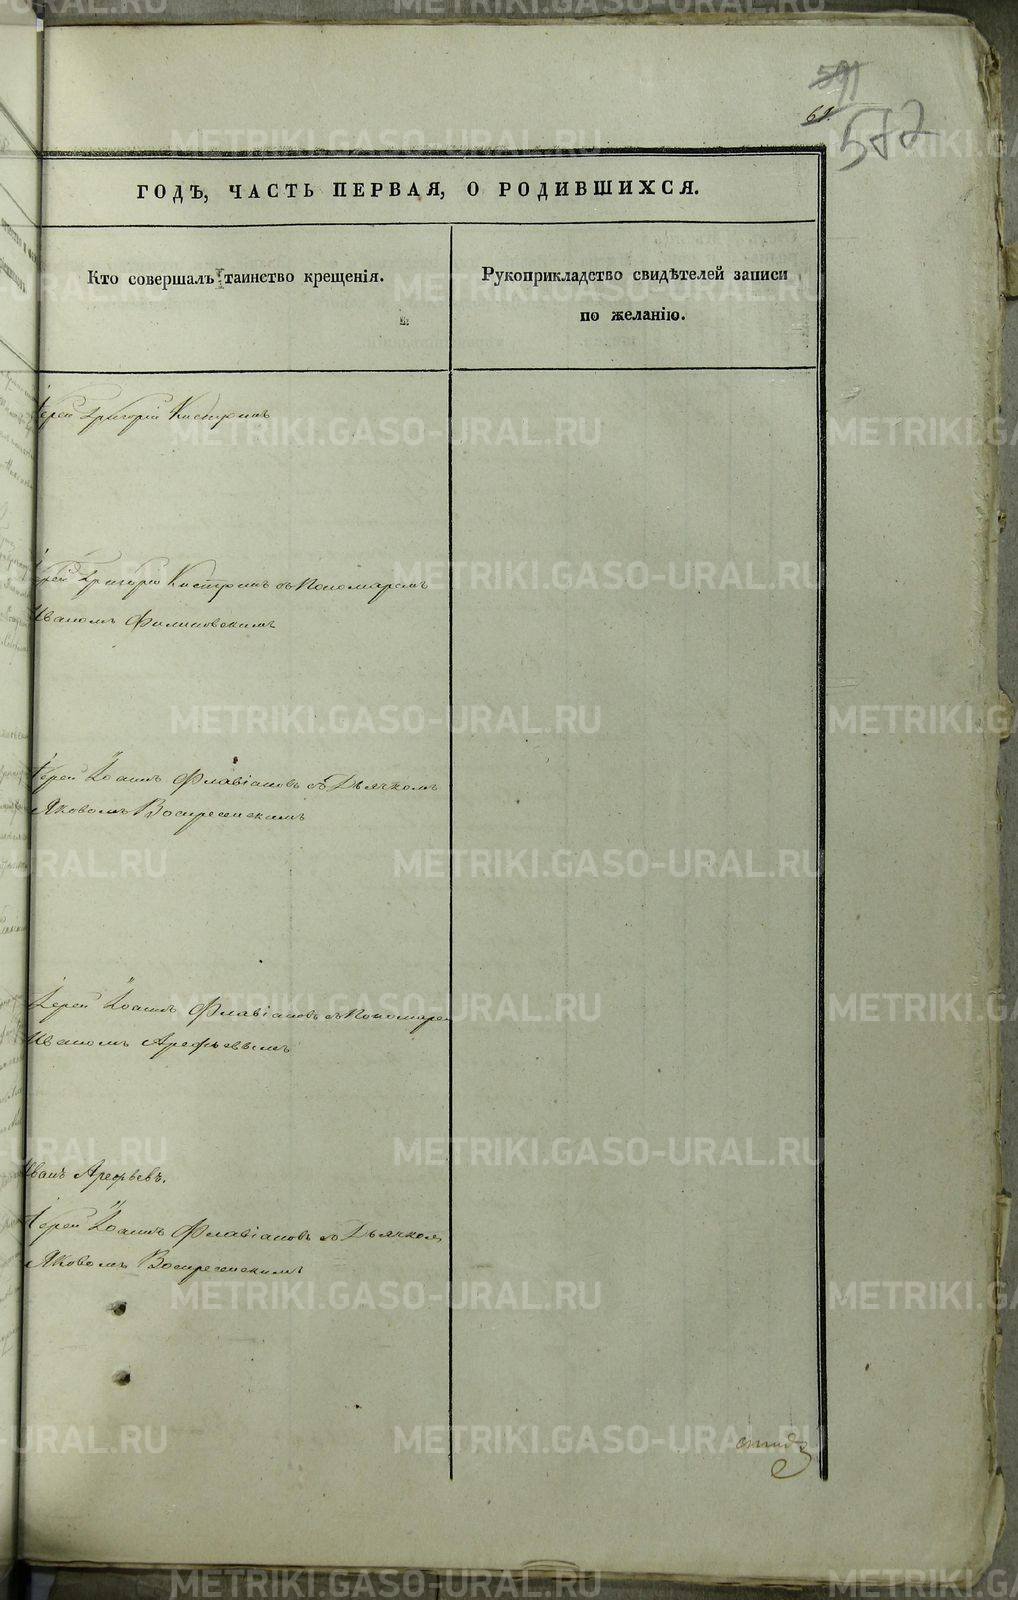 591
61.
572
ГОДѢ, ЧАСТЬ ПЕРВАЯ, О РОДИВШИХСЯ.
Кто совершалъ таинство крещенія.
Рукоприкладство свидѣтелей записи
по желанію.
Іерей Григорій Кистринъ
Іерей Григорій Кистринъ съ Пономаремъ
Иваномъ Филиповскимъ
Іерей Іоаннъ Флавіановъ съ Дьячкомъ
Яковомъ Воскресенскимъ
Іерей Іоаннъ Флавіановъ съ Пономаре
Иваномъ Арефьевымъ
Иванъ Арефьевъ.
Іерей Іоаннъ Флавіановъ съ Дьячком
Яковомъ Воскресенскимъ
METRIKI.GASO-URAL.RU